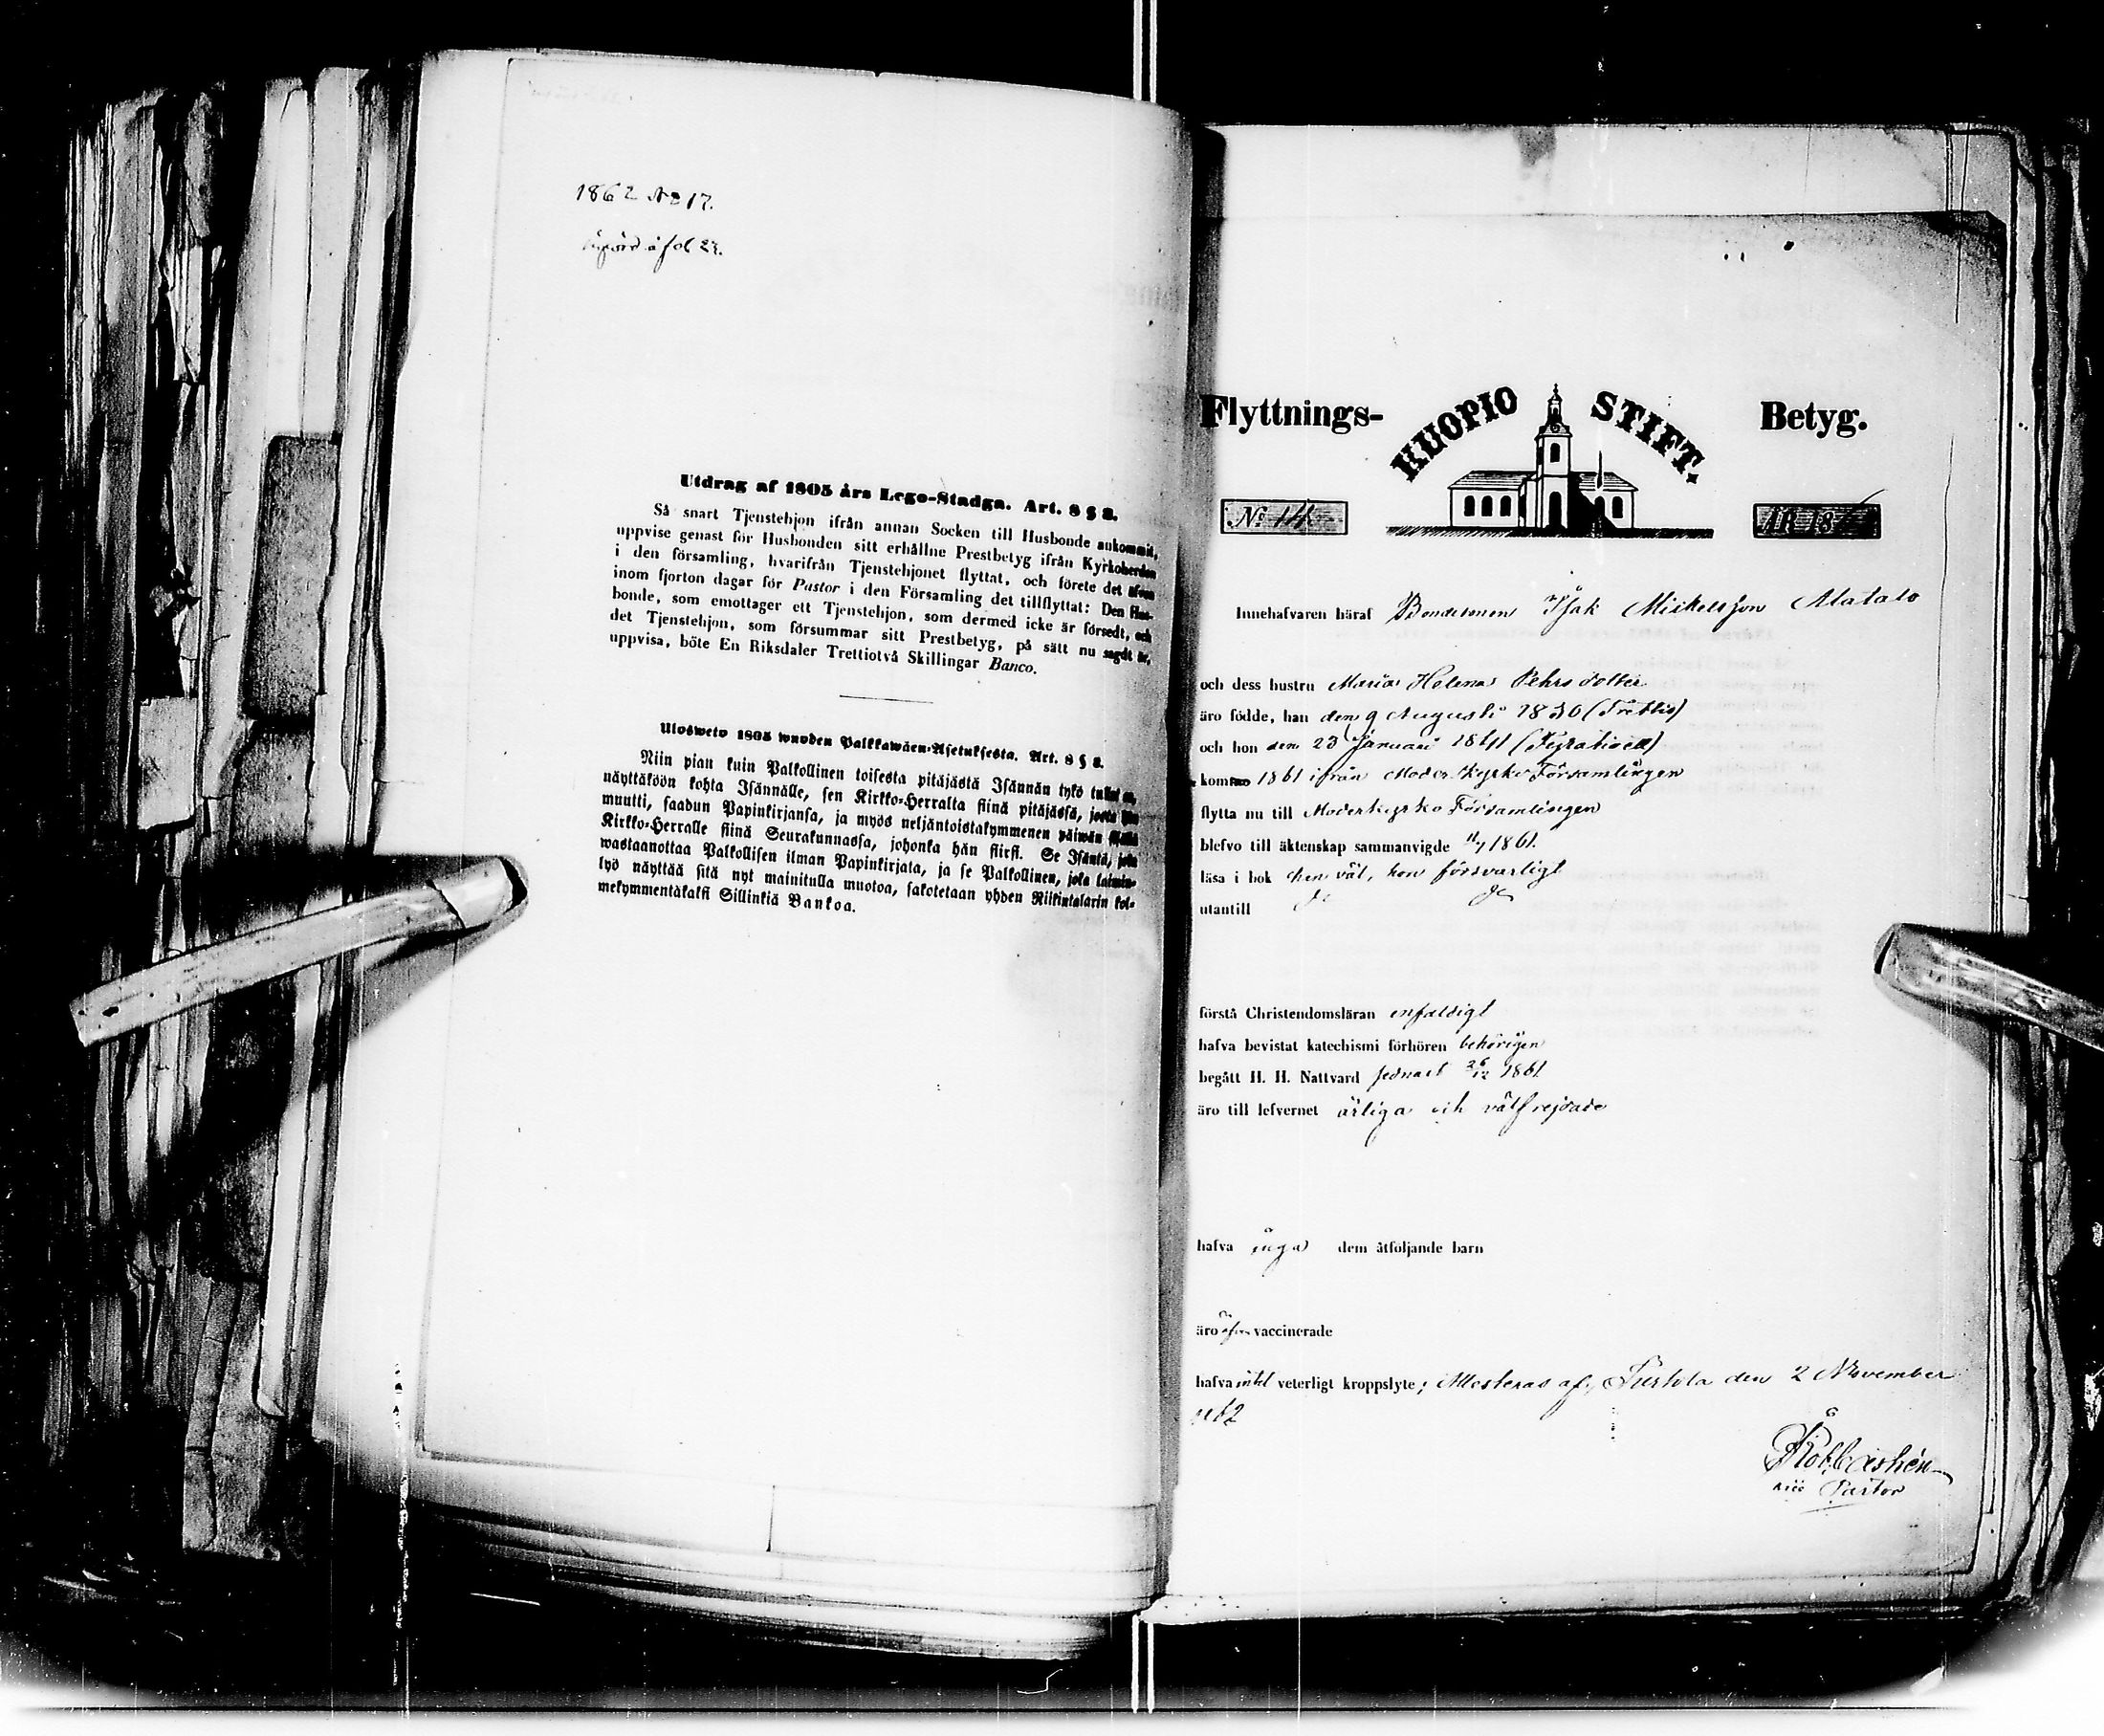 1862 No 17.
införd å fol 22.
Utdrag af 1805 års Lego-Stadga. Art. 8 § 2.
Så snart Tjenstehjon ifrån annan Socken till Husbonde ankommit,
uppvise genast för Husbonden sitt erhållne Prestbetyg ifrån Kyrkoherden
i den församling, hvarifrån Tjenstehjonet flyttat, och förete det äfven
inom fjorton dagar för Pastor i den Församling det tillflyttat: Den Hus-
bonde, som emottager ett Tjenstehjon, som dermed icke är försedt, och
det Tjenstehjon, som försummar sitt Prestbetyg, på sätt nu sagdt är,
uppvisa, böte En Riksdaler Trettiotvå Skillingar Banco.
Ulosweto 1805 wuoden Palkkawäen-Asetuksesta. Art. 8 § 2.
Niin pian kuin Palkollinen toisesta pitäjästä Isännän tykö tullut on,
näyttäköön kohta Isännälle, sen Kirkko-Herralta siinä pitäjässä, josta hän
muutti, saadun Papinkirjansa, ja myös neljäntoistakymmenen päiwän sisällä
Kirkko-Herralle siinä Seurakunnassa, johonka hän siirsi. Se Isäntä, joka
wastaanottaa Palkollisen ilman Papinkirjata, ja se Palkollinen, joka laimin-
lyö näyttää sitä nyt mainitulla muotoa, sakotetaan yhden Riikintalarin kol-
mekymmentäkaksi Sillinkiä Bankoa.
Flyttnings- KUOPIO STIFT. Betyg.
No 14 ÅR 18
Innehafvaren häraf Bondesonen Isak Mickelsson Alatalo
och dess hustru Maria Helena Pehrsdotter
äro födde, han den 9 Augusti 1830 (Trettio)
och hon den 23 Januari 1841 (Fyratioett)
kommo 1861 ifrån Moderkyrko Församlingen
flytta nu till Moderkyrko Församlingen
blefvo till äktenskap sammanvigde 1861.
läsa i bok han väl, hon försvarligt
utantill do do
förstå Christendomsläran enfaldigt
hafva bevistat katechismi förhören behörigen
begått H. H. Nattvard sednast 26/12 1861
äro till lefvernet ärliga och välfrejdade
hafva inga dem åtföljande barn
äro äfven vaccinerade
hafva intet veterligt kroppslyte; Attesteras af, Turtola den 2 November
1862
vice Pastor